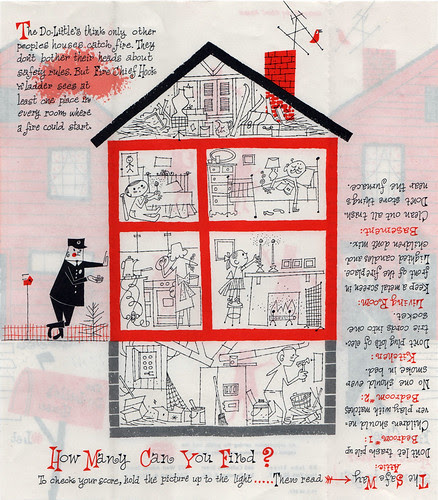 The Do-Little's think only other
peoples houses catch fire. They
don't bother their heads about
safety rules. But Fire Chief Hook
'n ladder sees at
least one place in
every room where
a fire could start.
How Many Can You Find?
To check your score, hold the picture up to the light ..... Then read
The Safe Way
Attic:
Don't let trash pile up
Bedroom #1:
Children should ne-
ver play with matches
Bedroom #2:
No one should ever
smoke in bed.
Kitchen:
Don't plug lots of elec-
tric cords into one
socket.
Living Room:
Keep a metal screen in
front of the fireplace.
Lighted candles and
children don't mix.
Basement:
Clean out all trash.
Don't store things
near the furnace.